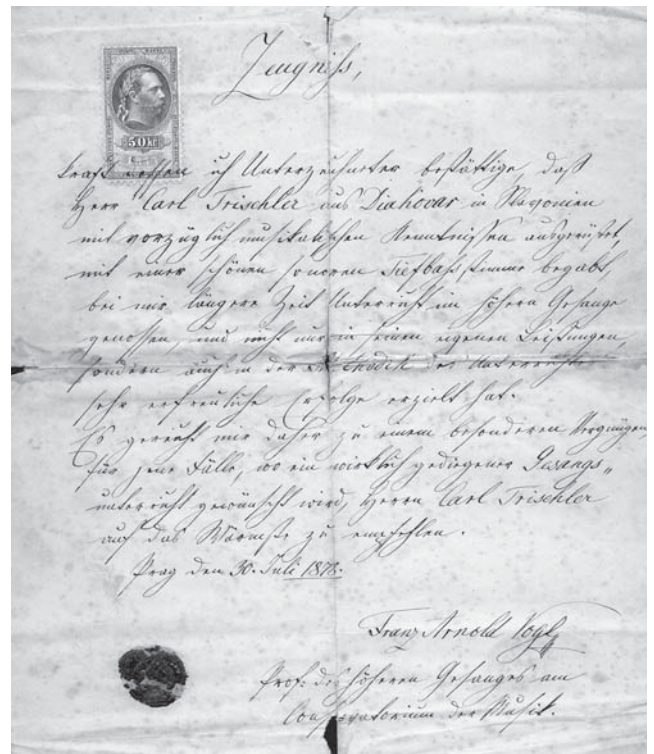 Zeugniß,
50 KR
kraft dessen ich Unterzeichneter bestättige, daß
Herr Carl Trischler aus Diakovar in Slavonien
mit vorzüglich musikalischen Kenntnissen ausgerüstet,
mit einer schönen sonoren Tiefbassstimme begabt,
bei mir längere Zeit Unterricht im höhern Gesange
genossen, und nicht nur in seinen eigenen Leistungen,
sondern auch in der Methodik des Unterrichts
sehr erfreuliche Erfolge erzielt hat.
Es gereicht mir daher zu einem besonderen Vergnügen,
für jene Fälle, wo ein wirklich gediegener Gesangs„
unterricht gewünscht wird, Herrn Carl Trischler
auf das Wärmste zu empfehlen.
Prag den 30. Juli 1878.
Franz Arnold Vogl
Prof: des höheren Gesanges am
Conservatorium der Musik.